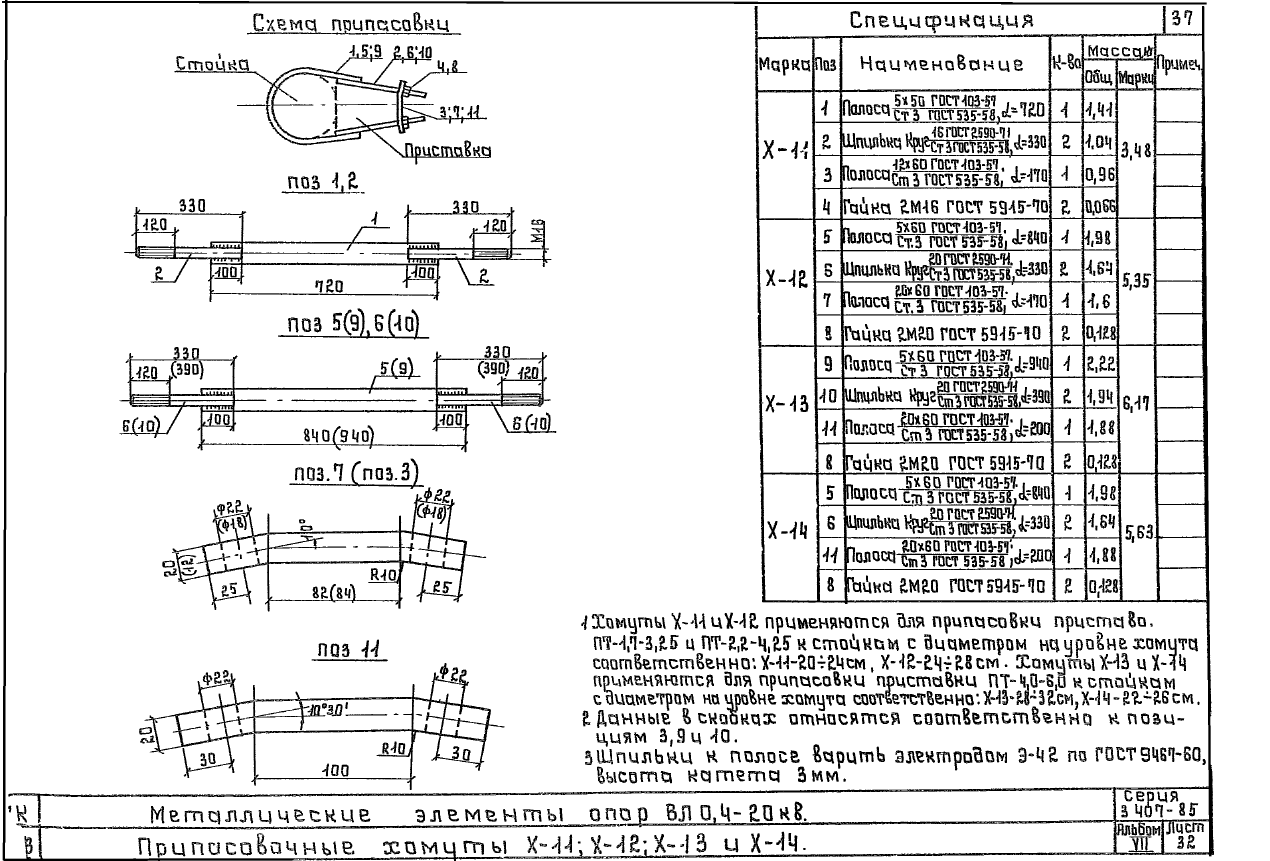 Схема припасовки
1,5;9
2,6;10
4,8
Стойка
3;7;11
Приставка
поз 1,2
330
330
120
1
120
М16
2
100
100
2
720
поз 5(9), 6(10)
330
(390)
330
(390)
120
5(9)
120
6(10)
100
100
6(10)
840(940)
поз.7 (поз.3)
ф22
(ф18)
ф22
(ф18)
10°
20
(12)
R10
25
82(84)
25
поз 11
ф22
ф22
10°30'
20
R10
30
30
100
Спецификация
37
Марка Поз Наименование К-во Масса Примеч.
Общ. Марки
Х-11
1 Полоса 5х50 ГОСТ 103-57 / Ст 3 ГОСТ 535-58, d=720 1 1,41
2 Шпилька Круг 16 ГОСТ 2590-71 / Ст 3 ГОСТ 535-58, d=330 2 1,04
3,48
3 Полоса 12х60 ГОСТ 103-57. / Ст 3 ГОСТ 535-58, d=170 1 0,96
4 Гайка 2М16 ГОСТ 5915-70 2 0,066
Х-12
5 Полоса 5х60 ГОСТ 103-57. / Ст.3 ГОСТ 535-58, d=840 1 1,98
6 Шпилька Круг 20 ГОСТ 2590-71 / Ст 3 ГОСТ 535-58, d=330 2 1,64
5,35
7 Полоса 20х60 ГОСТ 103-57. / Ст.3 ГОСТ 535-58, d=170 1 1,6
8 Гайка 2М20 ГОСТ 5915-70 2 0,128
Х-13
9 Полоса 5х60 ГОСТ 103-57. / Ст 3 ГОСТ 535-58, d=940 1 2,22
10 Шпилька Круг 20 ГОСТ 2590-71 / Ст 3 ГОСТ 535-58, d=390 2 1,94
6,17
11 Полоса 20х60 ГОСТ 103-57. / Ст 3 ГОСТ 535-58, d=200 1 1,88
8 Гайка 2М20 ГОСТ 5915-70 2 0,128
Х-14
5 Полоса 5х60 ГОСТ 103-57. / Ст 3 ГОСТ 535-58, d=840 1 1,98
6 Шпилька Круг 20 ГОСТ 2590-71 / Ст 3 ГОСТ 535-58, d=330 2 1,64
5,63
11 Полоса 20х60 ГОСТ 103-57. / Ст 3 ГОСТ 535-58, d=200 1 1,88
8 Гайка 2М20 ГОСТ 5915-70 2 0,128
1 Хомуты Х-11 и Х-12 применяются для припасовки приставо.
ПТ-1,7-3,25 и ПТ-2,2-4,25 к стойкам с диаметром на уровне хомута
соответственно: Х-11-20÷24см, Х-12-24÷28см. Хомуты Х-13 и Х-14
применяются для припасовки приставки ПТ-4,0-6,0 к стойкам
с диаметром на уровне хомута соответственно: Х-13-28÷32см, Х-14-22÷26см.
2 Данные в скобках относятся соответственно к пози-
циям 3,9 и 10.
3 Шпильки к полосе варить электродом Э-42 по ГОСТ 9467-60,
высота катета 3мм.
'К Металлические элементы опор ВЛ 0,4-20кв.
Серия
3 407-85
В Припасовочные хомуты Х-11; Х-12; Х-13 и Х-14.
Альбом
VII
Лист
32